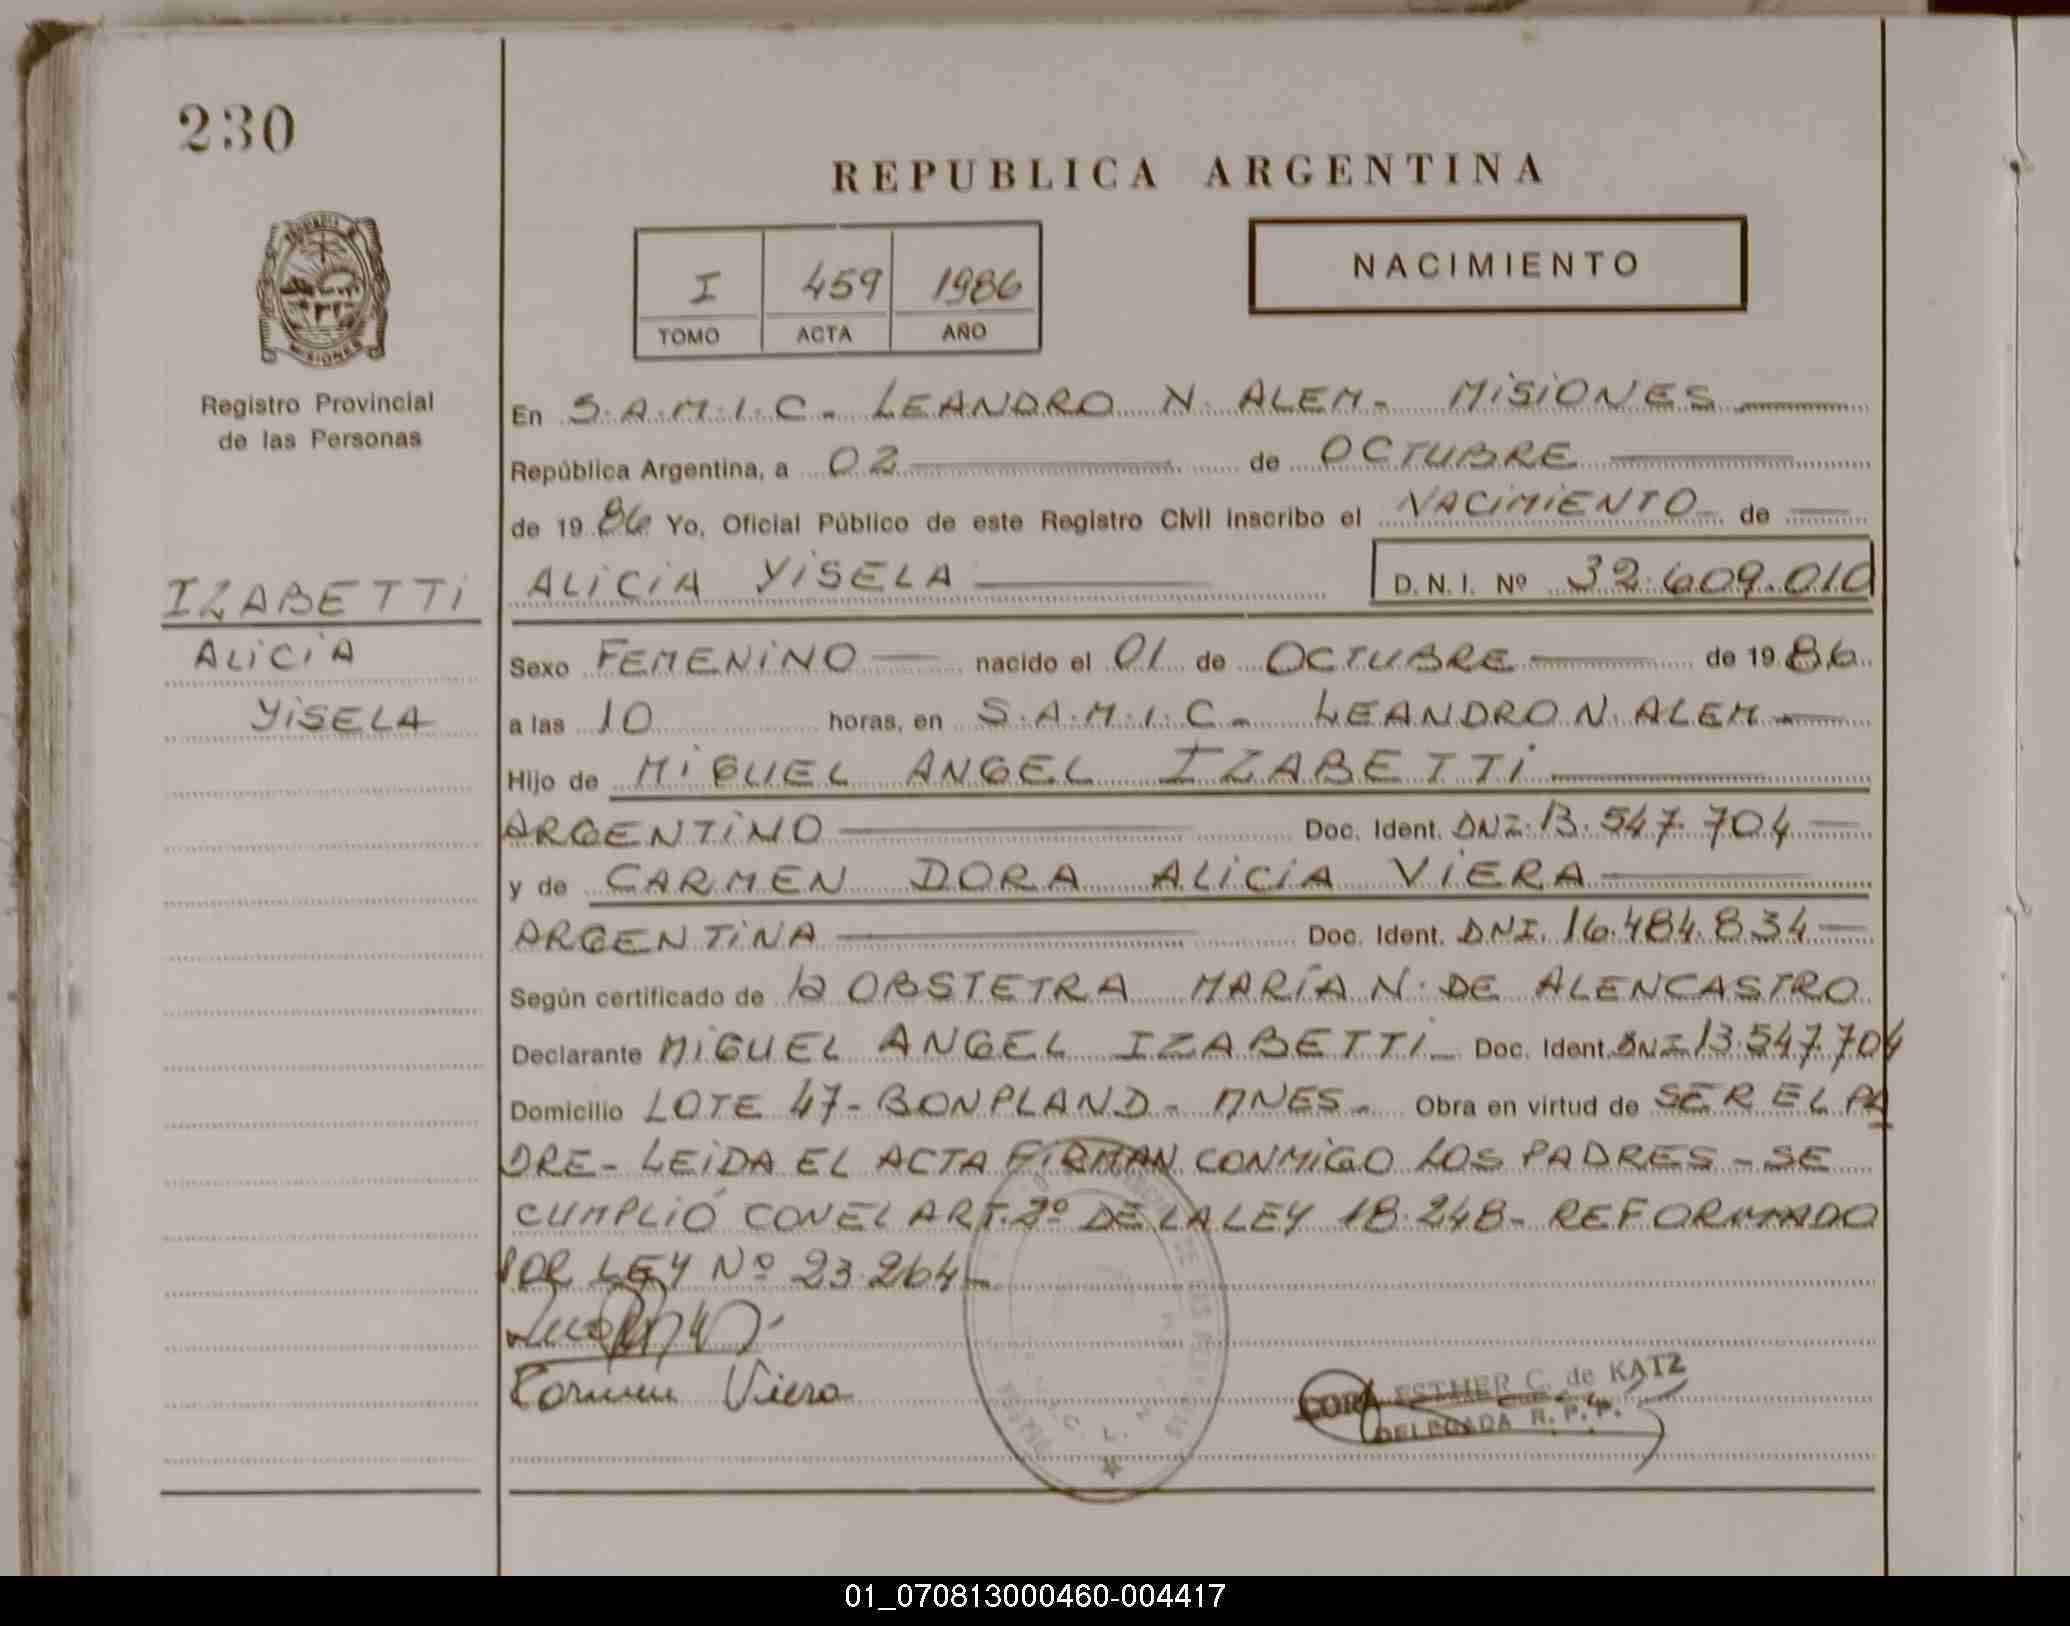 230
REPUBLICA ARGENTINA
NACIMIENTO
I 459 1986
TOMO ACTA AÑO
MISIONES
Registro Provincial
de las Personas
IZABETTI
ALICIA
YISELA
En S.A.M.I.C. - LEANDRO N. ALEM - MISIONES
República Argentina, a 02 de OCTUBRE
de 19 86 Yo, Oficial Público de este Registro Civil inscribo el NACIMIENTO de
ALICIA YISELA D.N.I. Nº 32.609.010
Sexo FEMENINO nacido el 01 de OCTUBRE de 19 86
a las 10 horas, en S.A.M.I.C. - LEANDRO N. ALEM -
Hijo de MIGUEL ANGEL IZABETTI
ARGENTINO Doc. Ident. DNI. 13.547.704
y de CARMEN DORA ALICIA VIERA
ARGENTINA Doc. Ident. DNI. 16.484.834
Según certificado de la OBSTETRA MARÍA N. DE ALENCASTRO
Declarante MIGUEL ANGEL IZABETTI - Doc. Ident. DNI 13.547.704
Domicilio LOTE 47 - BONPLAND - MNES - Obra en virtud de SER EL PA
DRE - LEIDA EL ACTA FIRMAN CONMIGO LOS PADRES - SE
CUMPLIÓ CON EL ART. 2º DE LA LEY 18.248 - REFORMADO
POR LEY Nº 23.264 -
Carmen Viera
CORA ESTHER C. de KATZ
DELEGADA R. P. P.
01_070813000460-004417